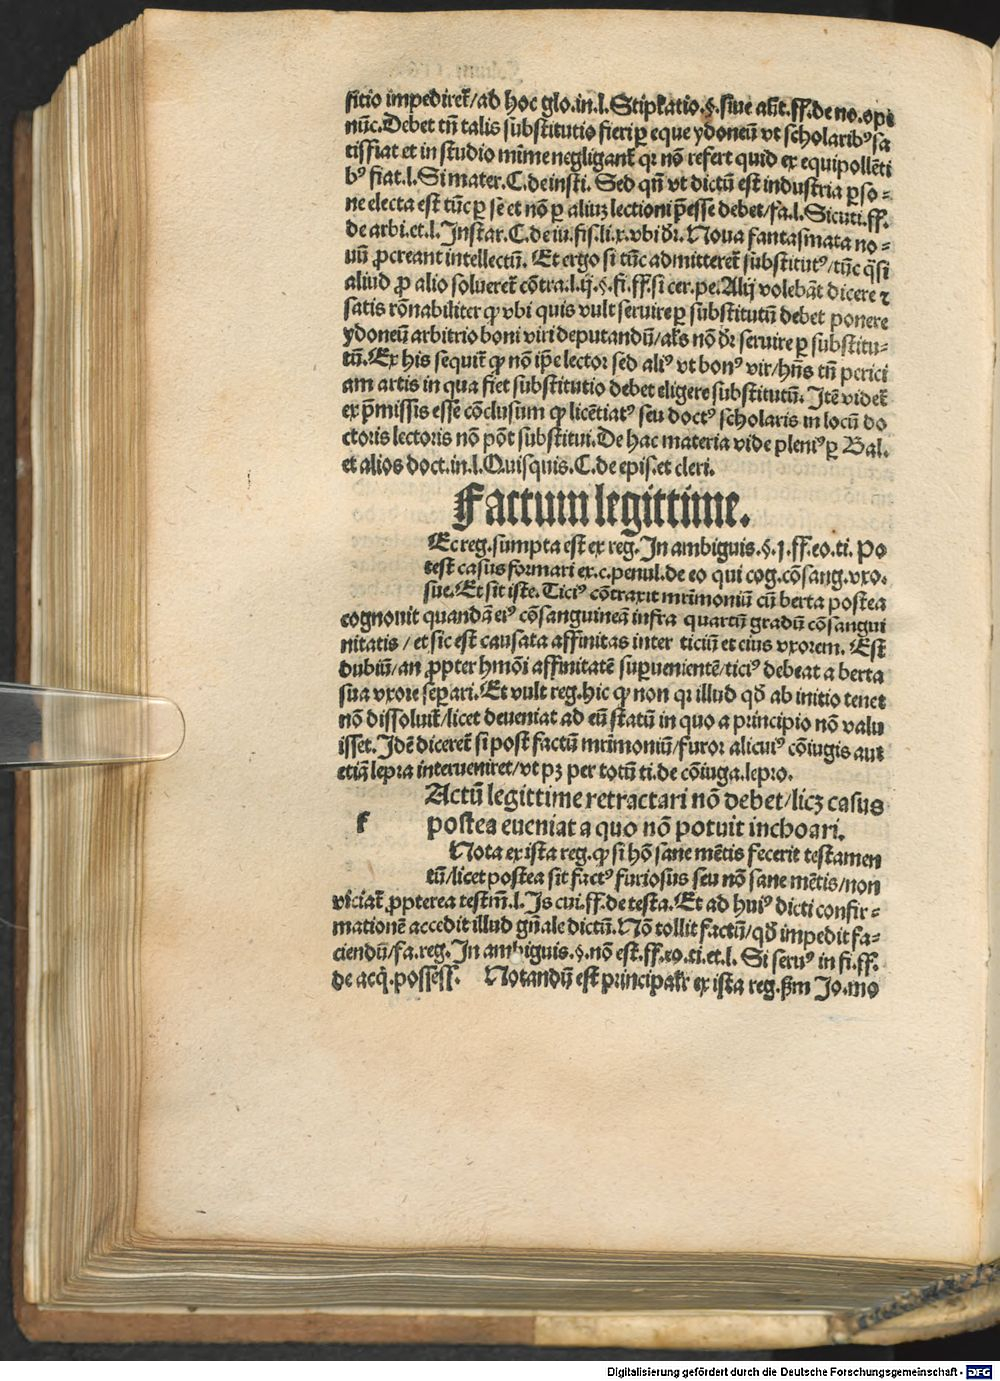 sitio impediret̃/ad hoc glo.in.l.Stipl̃atio.§.siue alit̃.ff.de no.ope
nũc.Debet tñ talis substitutio fieri ꝑ eque ydoneũ vt scholaribꝰ sa
tisfiat et in studio mĩme negligant̃ qꝛ nõ refert quid ex equipollẽti
bꝰ fiat.l.Si mater.C.de insti. Sed qñ vt dictũ est industria ꝑso-
ne electa est tũc ꝑ se et nõ ꝑ aliuꝫ lectioni p̃esse debet/fa.l.Sicuti.ff.
de arbi.et.l.Instar.C.de iu.fis.li.x.vbi dr̃. Noua fantasmata no-
uũ ꝓcreant intellectũ. Et ergo si tũc admitteret̃ substitutꝰ/tũc q̃si
aliud ꝓ alio solueret̃ cõtra.l.ij.§.fi.ff.si cer.pe.Alij volebãt dicere ⁊
satis rõnabiliter ꝙ vbi quis vult seruire ꝑ substitutũ debet ponere
ydoneũ arbitrio boni viri deputandũ/al̃s nõ dr̃ seruire ꝑ substitu-
tũ.Ex his sequit̃ ꝙ nõ ip̃e lector sed aliꝰ vt bonꝰ vir/hñs tñ perici
am artis in qua fiet substitutio debet eligere substitutũ. Itẽ videt̃
ex p̃missis esse cõclusum ꝙ licẽtiatꝰ seu doctꝰ scholaris in locũ do
ctoris lectoris nõ põt substitui.De hac materia vide pleniꝰ ꝑ Bal.
et alios doct.in.l.Quisquis.C.de epis.et cleri.
Factum legittime.
Ec reg.sumpta est ex reg.In ambiguis.§.j.ff.eo.ti. Po
test casus formari ex.c.penul.de eo qui cog.cõsang.vxo.
sue.Et sit iste.Ticiꝰ cõtraxit mr̃imoniũ cũ berta postea
cognouit quandã eiꝰ cõsanguineã infra quartũ gradũ cõsangui
nitatis/et sic est causata affinitas inter ticiũ et eius vxorem. Est
dubiũ/an ꝓpter hmõi affinitatẽ suꝑuenientẽ/ticiꝰ debeat a berta
sua vxore seꝑari.Et vult reg.hic ꝙ non qꝛ illud qd̃ ab initio tenet
nõ dissoluit̃/licet deueniat ad eũ statũ in quo a principio nõ valu
isset.Idẽ diceret̃ si post factũ mr̃imoniũ/furor alicuiꝰ cõiugis aut
etiã lepra interueniret/vt pꝫ per totũ ti.de cõiuga.lepro.
Actũ legittime retractari nõ debet/licꝫ casus
f postea eueniat a quo nõ potuit inchoari.
Nota ex ista reg.ꝙ si hõ sane mẽtis fecerit testamen
tũ/licet postea sit factꝰ furiosus seu nõ sane mẽtis/non
viciat̃ ꝓpterea testm̃.l.Is cui.ff.de testa.Et ad huiꝰ dicti confir-
mationẽ accedit illud gñale dictũ.Nõ tollit factũ/qd̃ impedit fa-
ciendũ/fa.reg.In ambiguis.§.nõ est.ff.eo.ti.et.l. Si seruꝰ in fi.ff.
de acq̃.possess. Notandũ est principal̃r ex ista reg.ẜm Jo.mo
Digitalisierung gefördert durch die Deutsche Forschungsgemeinschaft - DFG